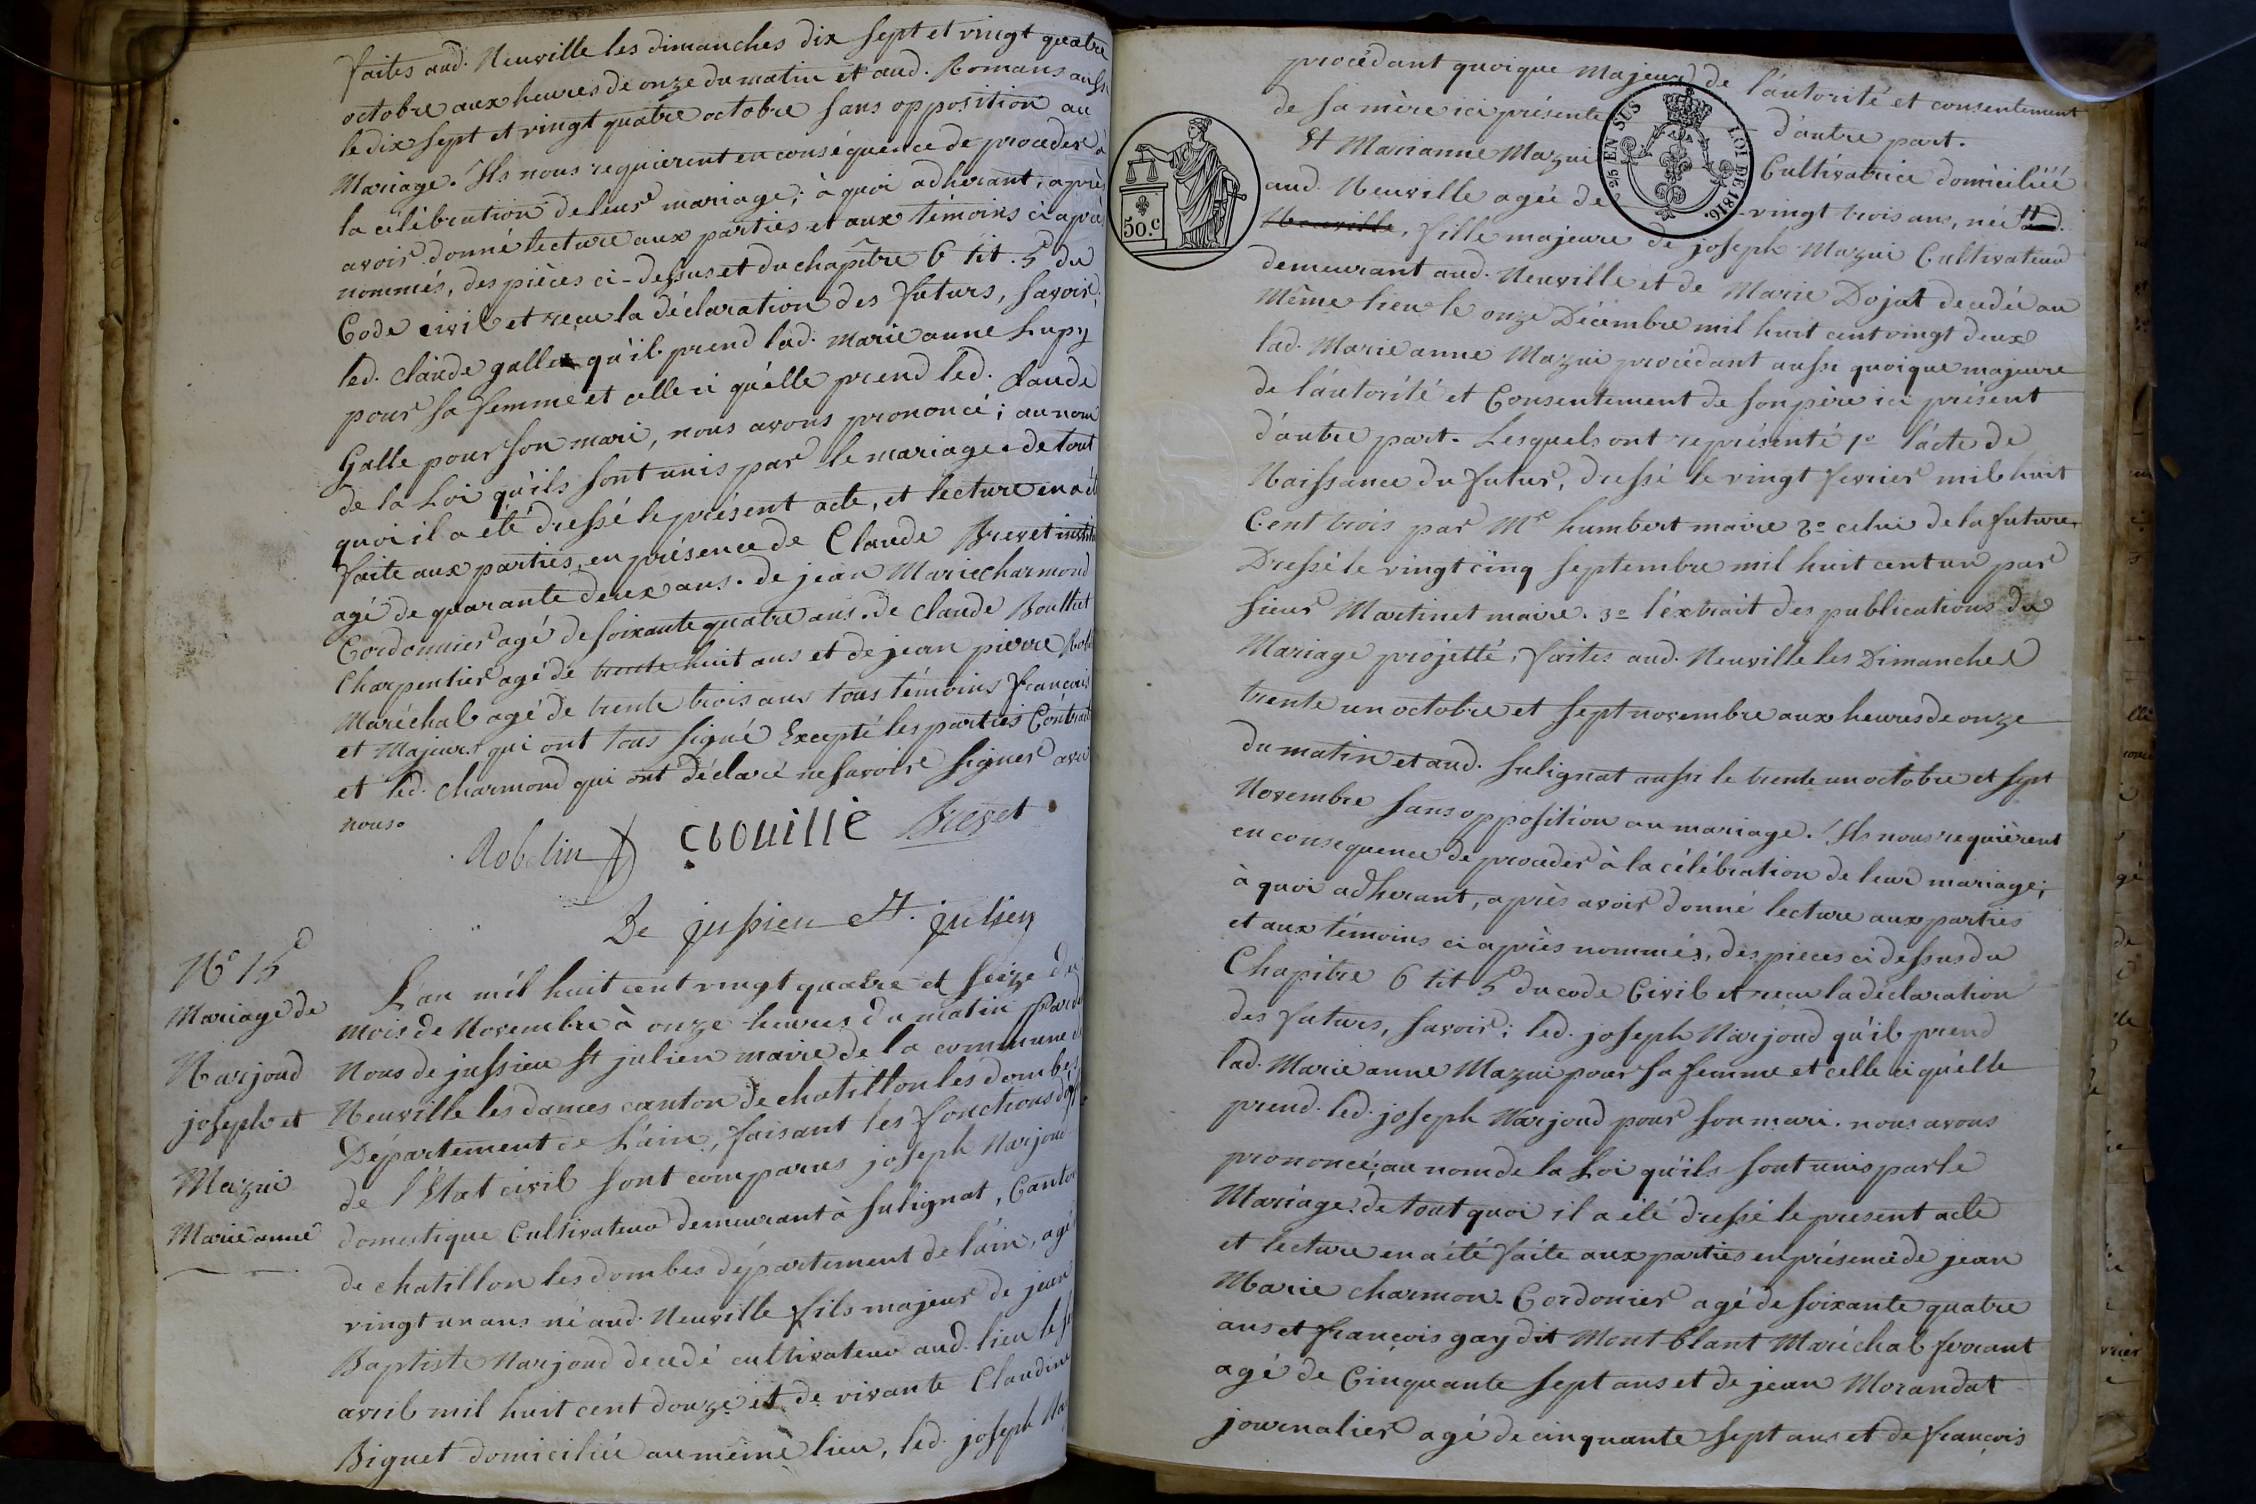 faites aud. Neuville les dimanches dix sept et vingt quatre
octobre aux heures de onze du matin et aud. Romans aussi
le dix sept et vingt quatre octobre sans opposition au
Mariage. Ils nous requierent en conséquence de proceder à
la célébration de leur mariage; à quoi adherant, après
avoir donné lecture aux parties et aux témoins ci après
nommés, des pièces ci-dessus et du chapitre 6 tit. 5 du
Code civil et reçu la déclaration des futurs, savoir:
led. Claude galle qu'il prend lad. marie anne Lupy
pour sa femme et celle ci qu'elle prend led. Claude
Galle pour son mari, nous avons prononcé; au nom
de la Loi qu'ils sont unis par le mariage. de tout
quoi il a été dressé le présent acte, et lecture en a été
faite aux parties, en présence de Claude Brevet
agé de quarante deux ans. de jean Marie charmond
Cordonnier agé de soixante quatre ans. de claude Bouillet
Charpentier agé de trente huit ans et de jean pierre
Maréchal agé de trente trois ans tous témoins français
et Majeurs qui ont tous signé Excepté les parties
et led. Charmond qui ont déclaré ne savoir signer avec
nous.
Robelin cbouille Brevet
De jussieu St. julien
N° 15
Mariage de
Narjoud
joseph et
Mazui
Marie anne
L'an mil huit cent vingt quatre et seize du
mois de Novembre à onze heures du matin Pardt
Nous de jussieu St julien maire de la commune de
Neuville les dames canton de chatillon les dombes
Département de L'ain, faisant les fonctions d'off
de l'Etat civil sont comparus joseph Narjoud
domestique Cultivateur demeurant à Sulignat, Canton
de chatillon les dombes département de l'ain, agé
vingt un ans né aud. Neuville fils majeur de jean
Baptiste Narjoud decedé cultivateur aud. lieu le
avril mil huit cent douze et de vivante Claudine
Biguet domiciliée au même lieu, led. joseph
procédant quoique Majeur de l'autorité et consentement
de sa mère ici présente d'autre part.
Et Marianne Mazui Cultivatrice domiciliée
aud. Neuville agée de vingt trois ans, née
Neuville, fille majeure de joseph Mazui Cultivateur
demeurant aud. Neuville et de Marie Dojat decedée au
Même lieu le onze Décembre mil huit cent vingt deux
lad. Marie anne Mazui procédant aussi quoique majeure
de l'autorité et Consentement de son père ici présent
d'autre part. Lesquels ont représenté 1° l'acte de
Naissance du futur, dressé le vingt fevrier mil huit
Cent trois par Mr humbert maire 2° celui de la future
Dressé le vingt cinq septembre mil huit cent un par
sieur Martinet maire. 3° l'extrait des publications du
Mariage projetté, faites aud. Neuville les Dimanches
trente un octobre et sept novembre aux heures de onze
du matin et aud. Sulignat aussi le trente un octobre et sept
Novembre sans opposition au mariage. Ils nous requièrent
en consequence de proceder à la célébration de leur mariage;
à quoi adherant, après avoir donné lecture aux parties
et aux témoins ci après nommés, des pieces ci dessus du
Chapitre 6 tit 5 du code Civil et reçu la déclaration
des futurs, savoir; led. joseph Narjoud qu'il prend
lad. Marie anne Mazui pour sa femme et celle ci qu'elle
prend. led. joseph Narjoud pour son mari. nous avons
prononcé; au nom de la Loi qu'ils sont unis par le
Mariage. de tout quoi il a été dressé le present acte
et lecture en a été faite aux parties en présence de jean
Marie charmon. Cordonier agé de soixante quatre
ans et françois gay dit Mont blant Maréchal ferrant
agé de Cinquante sept ans et de jean Morandat
journalier agé de cinquante sept ans et de françois
50.C
2/5 EN SUS LOI DE 1816.